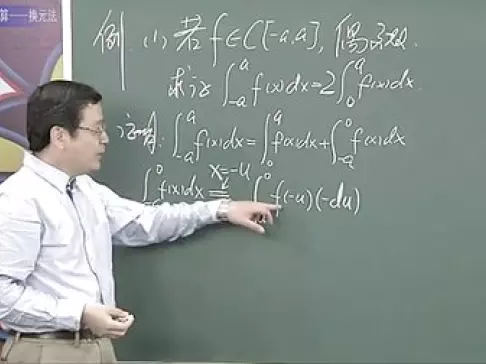 算——换元法
例. (1) 若 f∈C[-a,a], 偶函数.
求证 ∫_{-a}^{a} f(x)dx=2∫_{0}^{a} f(x)dx.
证明: ∫_{-a}^{a} f(x)dx=∫_{0}^{a} f(x)dx+∫_{-a}^{0} f(x)dx
x=-u
∫^{0} f(x)dx = ∫^{0} f(-u)(-du)